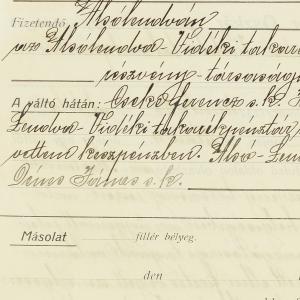 Fizetendő Alsólendván
az Alsólendva-Vidéki takaré
részvény-társaság
A váltó hátán: Csek Ferencz s. k.
Lendva-Vidéki takarékpénztár
vettem készpénzben. Alsó-Len
Dénes s. k.
Másolat fillér bélyeg.
den